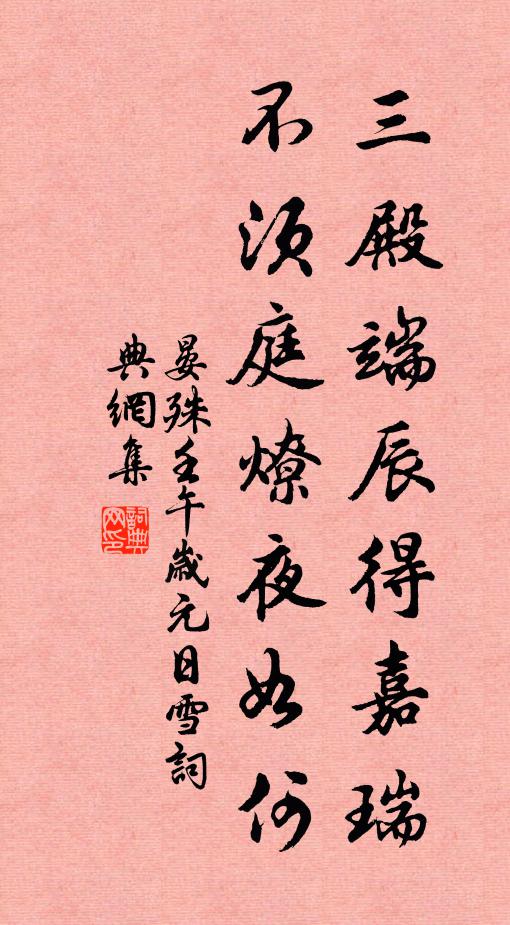 三殿端辰得嘉瑞
不須庭燎夜如何
晏殊壬午歲元日雪詞
典網集
詞典網印